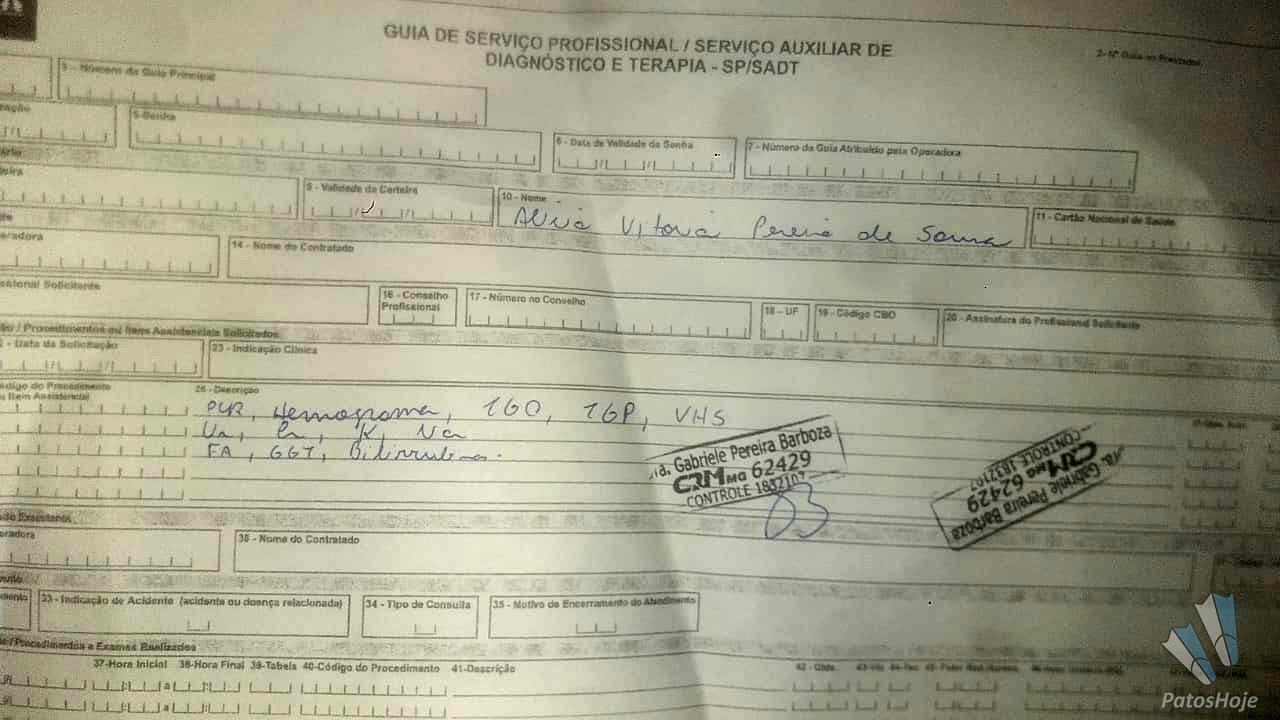 GUIA DE SERVIÇO PROFISSIONAL / SERVIÇO AUXILIAR DE
DIAGNÓSTICO E TERAPIA - SP/SADT
2- Nº Guia no Prestador
3 - Número da Guia Principal
5-Senha
6 - Data de Validade da Senha
7 - Número da Guia Atribuído pela Operadora
9 - Validade da Carteira
10 - Nome
Vitoria Pereira de Sousa
11 - Cartão Nacional de Saúde
14 - Nome do Contratado
16 - Conselho
Profissional
17 - Número no Conselho
18 - UF
19 - Código CBO
20 - Assinatura do Profissional Solicitante
/ Procedimentos ou Itens Assistenciais Solicitados
- Data da Solicitação
23 - Indicação Clínica
do Procedimento
Item Assistencial
26 - Descrição
PCR, Hemograma, TGO, TGP, VHS
Ur, Cr, K, Na
FA, GGT, Bilirrubina.
Gabriele Pereira Barboza
CRM MG 62429
CONTROLE 1832107
Gabriele Pereira Barboza
CRM MG 62429
CONTROLE 1832107
30 - Nome do Contratado
33 - Indicação de Acidente (acidente ou doença relacionada)
34 - Tipo de Consulta
35 - Motivo de Encerramento do Atendimento
/ Procedimentos e Exames Realizados
37-Hora Inicial 38-Hora Final 39-Tabela 40-Código do Procedimento 41-Descrição
42 - Qtde.
PatosHoje